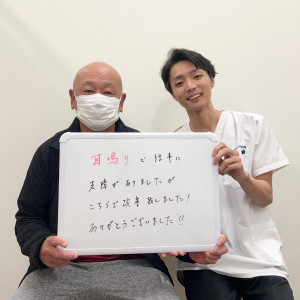 耳鳴りで仕事に
支障がありましたが
こちらで改善しました!
ありがとうございました!!